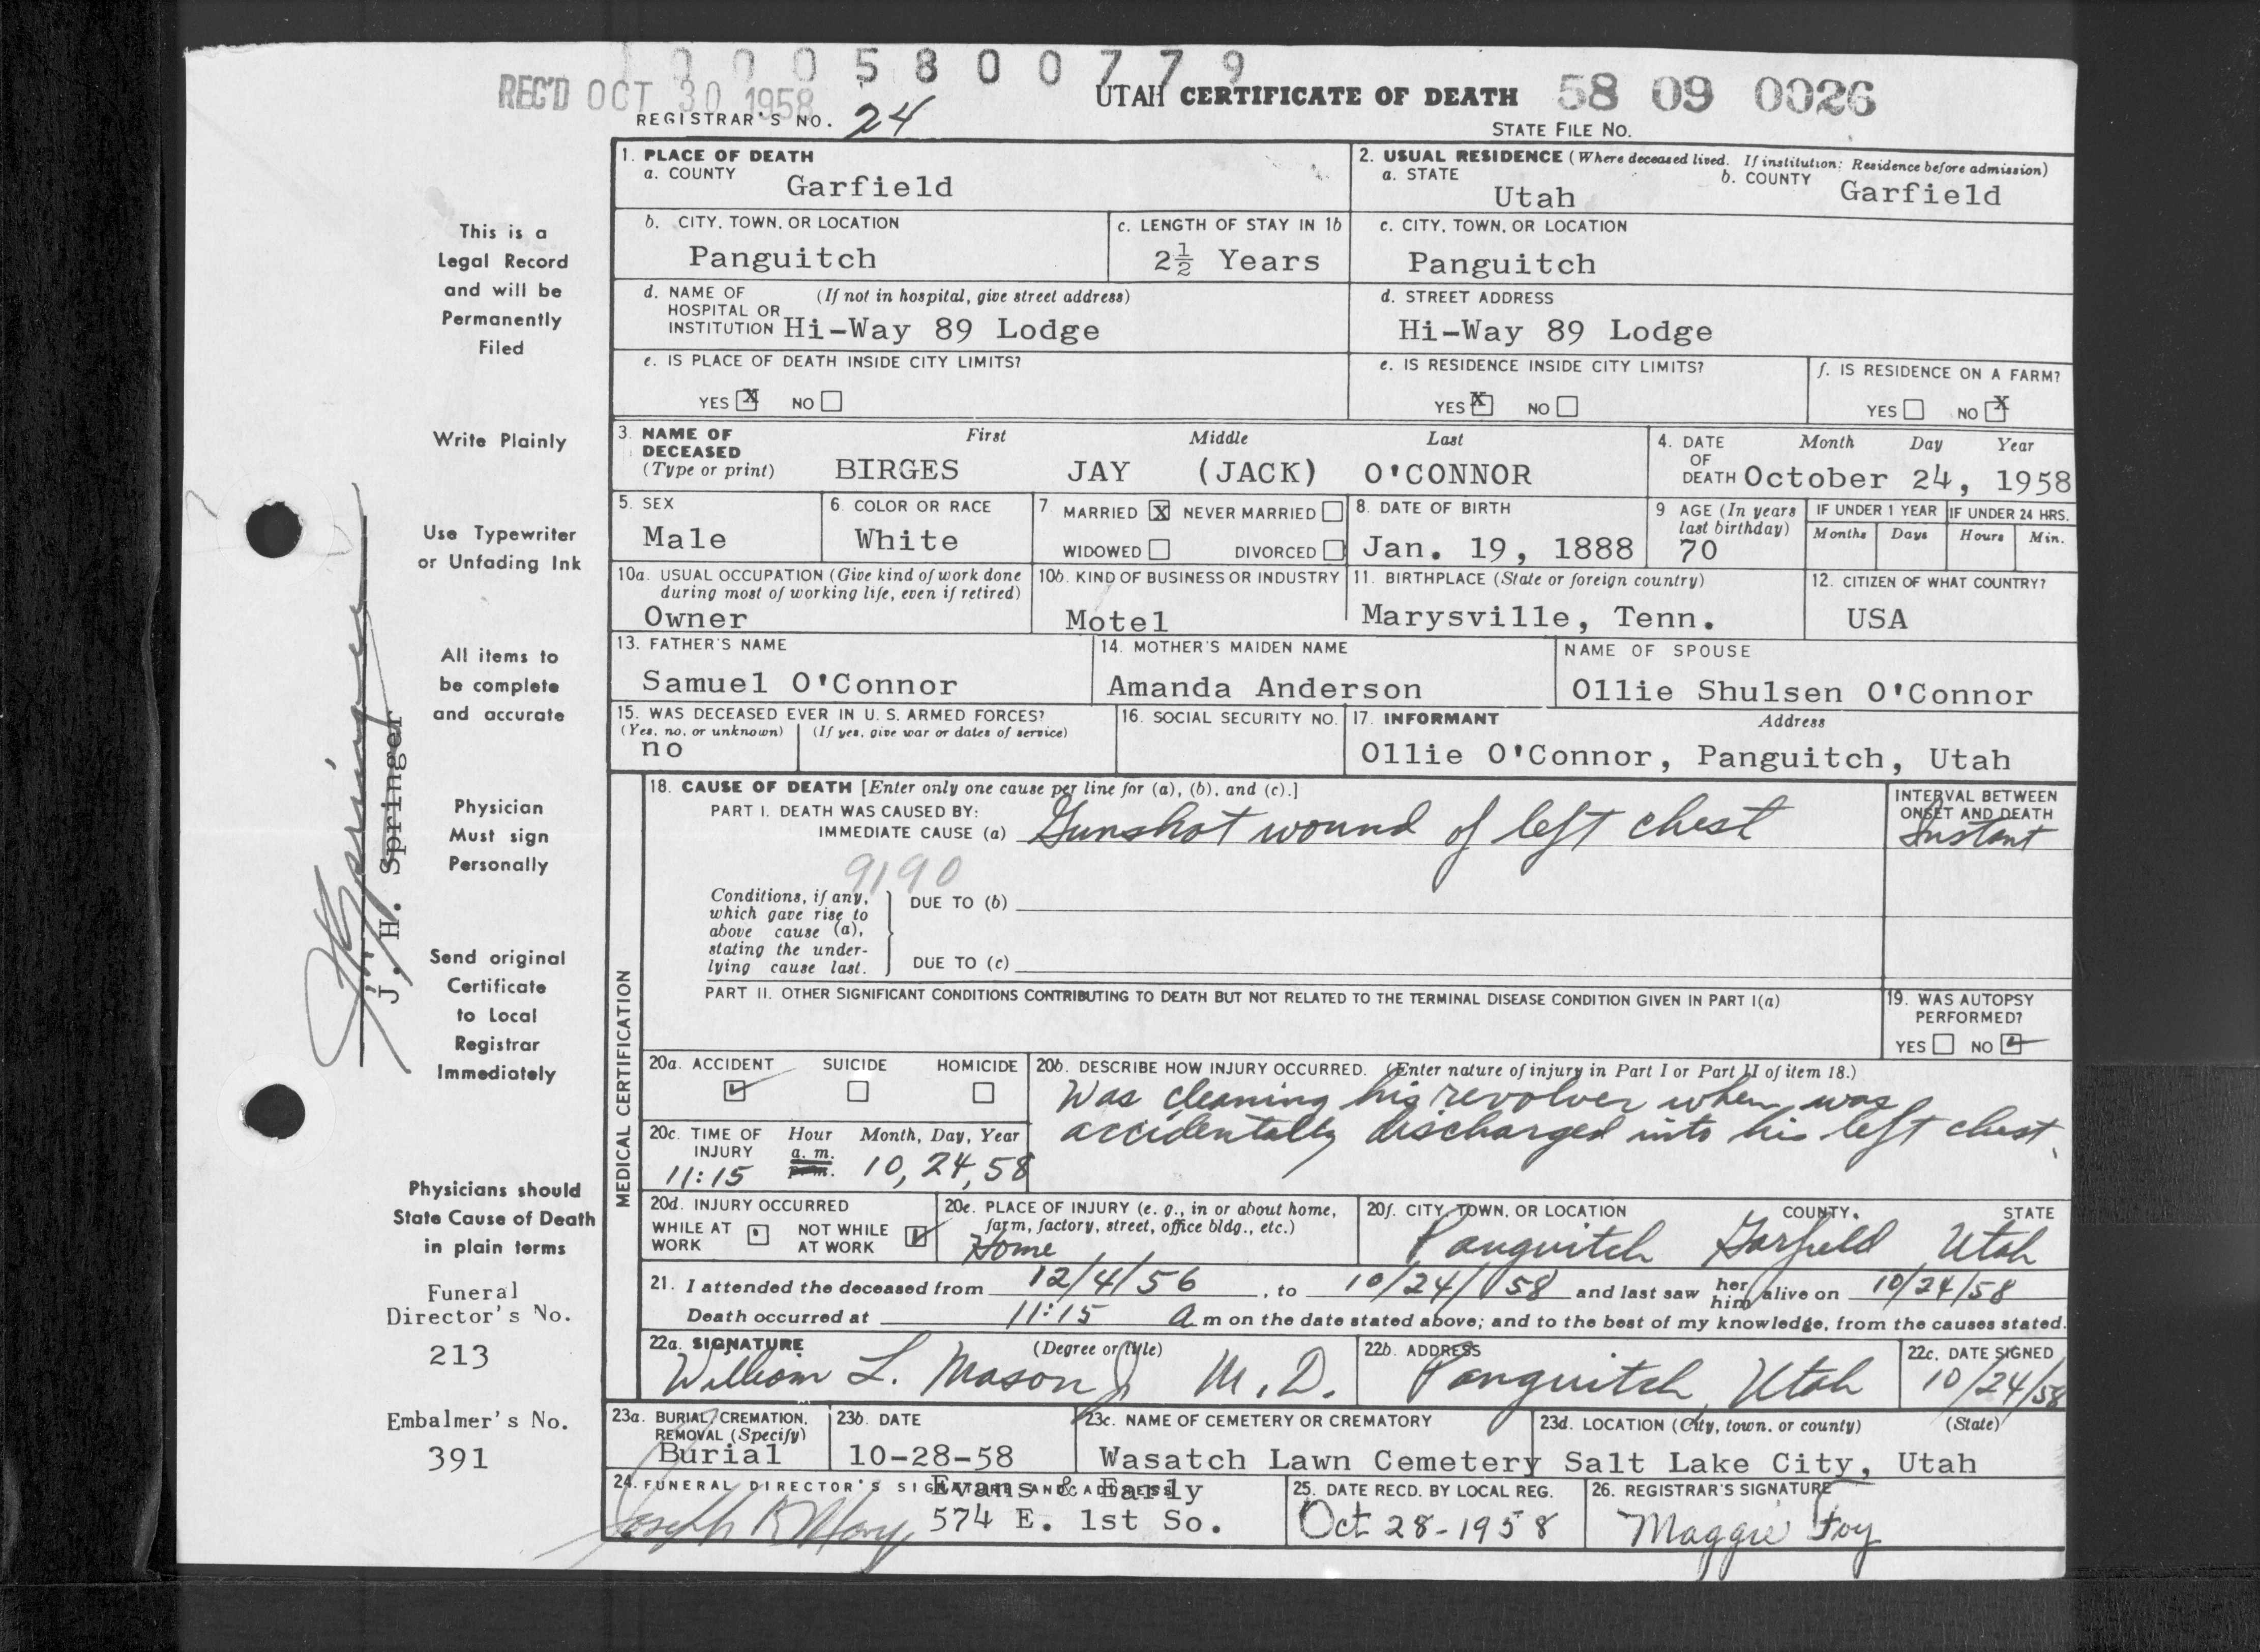 1 0 0 0 5 8 0 0 7 7 9
REC'D OCT 30 1958
UTAH CERTIFICATE OF DEATH 58 09 0026
REGISTRAR'S NO. 24
STATE FILE NO.
1. PLACE OF DEATH
a. COUNTY Garfield
2. USUAL RESIDENCE (Where deceased lived. If institution: Residence before admission)
a. STATE Utah b. COUNTY Garfield
b. CITY, TOWN, OR LOCATION
Panguitch
c. LENGTH OF STAY IN 1b
2½ Years
c. CITY, TOWN, OR LOCATION
Panguitch
d. NAME OF (If not in hospital, give street address)
HOSPITAL OR
INSTITUTION Hi-Way 89 Lodge
d. STREET ADDRESS
Hi-Way 89 Lodge
e. IS PLACE OF DEATH INSIDE CITY LIMITS?
YES X NO
e. IS RESIDENCE INSIDE CITY LIMITS?
YES X NO
f. IS RESIDENCE ON A FARM?
YES NO X
3. NAME OF DECEASED (Type or print)
First Middle Last
BIRGES JAY (JACK) O'CONNOR
4. DATE OF DEATH
Month Day Year
October 24, 1958
5. SEX
Male
6. COLOR OR RACE
White
7. MARRIED X NEVER MARRIED
WIDOWED DIVORCED
8. DATE OF BIRTH
Jan. 19, 1888
9 AGE (In years
last birthday)
70
IF UNDER 1 YEAR
Months Days
IF UNDER 24 HRS.
Hours Min.
10a. USUAL OCCUPATION (Give kind of work done
during most of working life, even if retired)
Owner
10b. KIND OF BUSINESS OR INDUSTRY
Motel
11. BIRTHPLACE (State or foreign country)
Marysville, Tenn.
12. CITIZEN OF WHAT COUNTRY?
USA
13. FATHER'S NAME
Samuel O'Connor
14. MOTHER'S MAIDEN NAME
Amanda Anderson
NAME OF SPOUSE
Ollie Shulsen O'Connor
15. WAS DECEASED EVER IN U. S. ARMED FORCES?
(Yes, no, or unknown) (If yes, give war or dates of service)
no
16. SOCIAL SECURITY NO.
17. INFORMANT Address
Ollie O'Connor, Panguitch, Utah
MEDICAL CERTIFICATION
18. CAUSE OF DEATH [Enter only one cause per line for (a), (b), and (c).]
PART I. DEATH WAS CAUSED BY:
IMMEDIATE CAUSE (a) Gunshot wound of left chest
INTERVAL BETWEEN
ONSET AND DEATH
Instant
9190
Conditions, if any,
which gave rise to
above cause (a),
stating the under-
lying cause last.
DUE TO (b)
DUE TO (c)
PART II. OTHER SIGNIFICANT CONDITIONS CONTRIBUTING TO DEATH BUT NOT RELATED TO THE TERMINAL DISEASE CONDITION GIVEN IN PART I(a)
19. WAS AUTOPSY
PERFORMED?
YES NO ✓
20a. ACCIDENT SUICIDE HOMICIDE
✓
20b. DESCRIBE HOW INJURY OCCURRED. (Enter nature of injury in Part I or Part II of item 18.)
Was cleaning his revolver when was
accidentally discharged into his left chest.
20c. TIME OF INJURY Hour Month, Day, Year
11:15 a. m. p. m. 10, 24, 58
20d. INJURY OCCURRED
WHILE AT WORK NOT WHILE AT WORK ✓
20e. PLACE OF INJURY (e. g., in or about home,
farm, factory, street, office bldg., etc.)
Home
20f. CITY, TOWN, OR LOCATION COUNTY, STATE
Panguitch Garfield Utah
21. I attended the deceased from 12/4/56, to 10/24/58 and last saw her him alive on 10/24/58
Death occurred at 11:15 A m on the date stated above; and to the best of my knowledge, from the causes stated.
22a. SIGNATURE (Degree or title)
William L. Mason Jr M.D.
22b. ADDRESS
Panguitch, Utah
22c. DATE SIGNED
10/24/58
23a. BURIAL, CREMATION,
REMOVAL (Specify)
Burial
23b. DATE
10-28-58
23c. NAME OF CEMETERY OR CREMATORY
Wasatch Lawn Cemetery
23d. LOCATION (City, town, or county) (State)
Salt Lake City, Utah
24. FUNERAL DIRECTOR'S SIGNATURE AND ADDRESS
Evans & Early
574 E. 1st So.
25. DATE RECD. BY LOCAL REG.
Oct 28-1958
26. REGISTRAR'S SIGNATURE
Maggie Foy
This is a
Legal Record
and will be
Permanently
Filed
Write Plainly
Use Typewriter
or Unfading Ink
All items to
be complete
and accurate
Physician
Must sign
Personally
Send original
Certificate
to Local
Registrar
Immediately
Physicians should
State Cause of Death
in plain terms
Funeral
Director's No.
213
Embalmer's No.
391
J. H. Springer